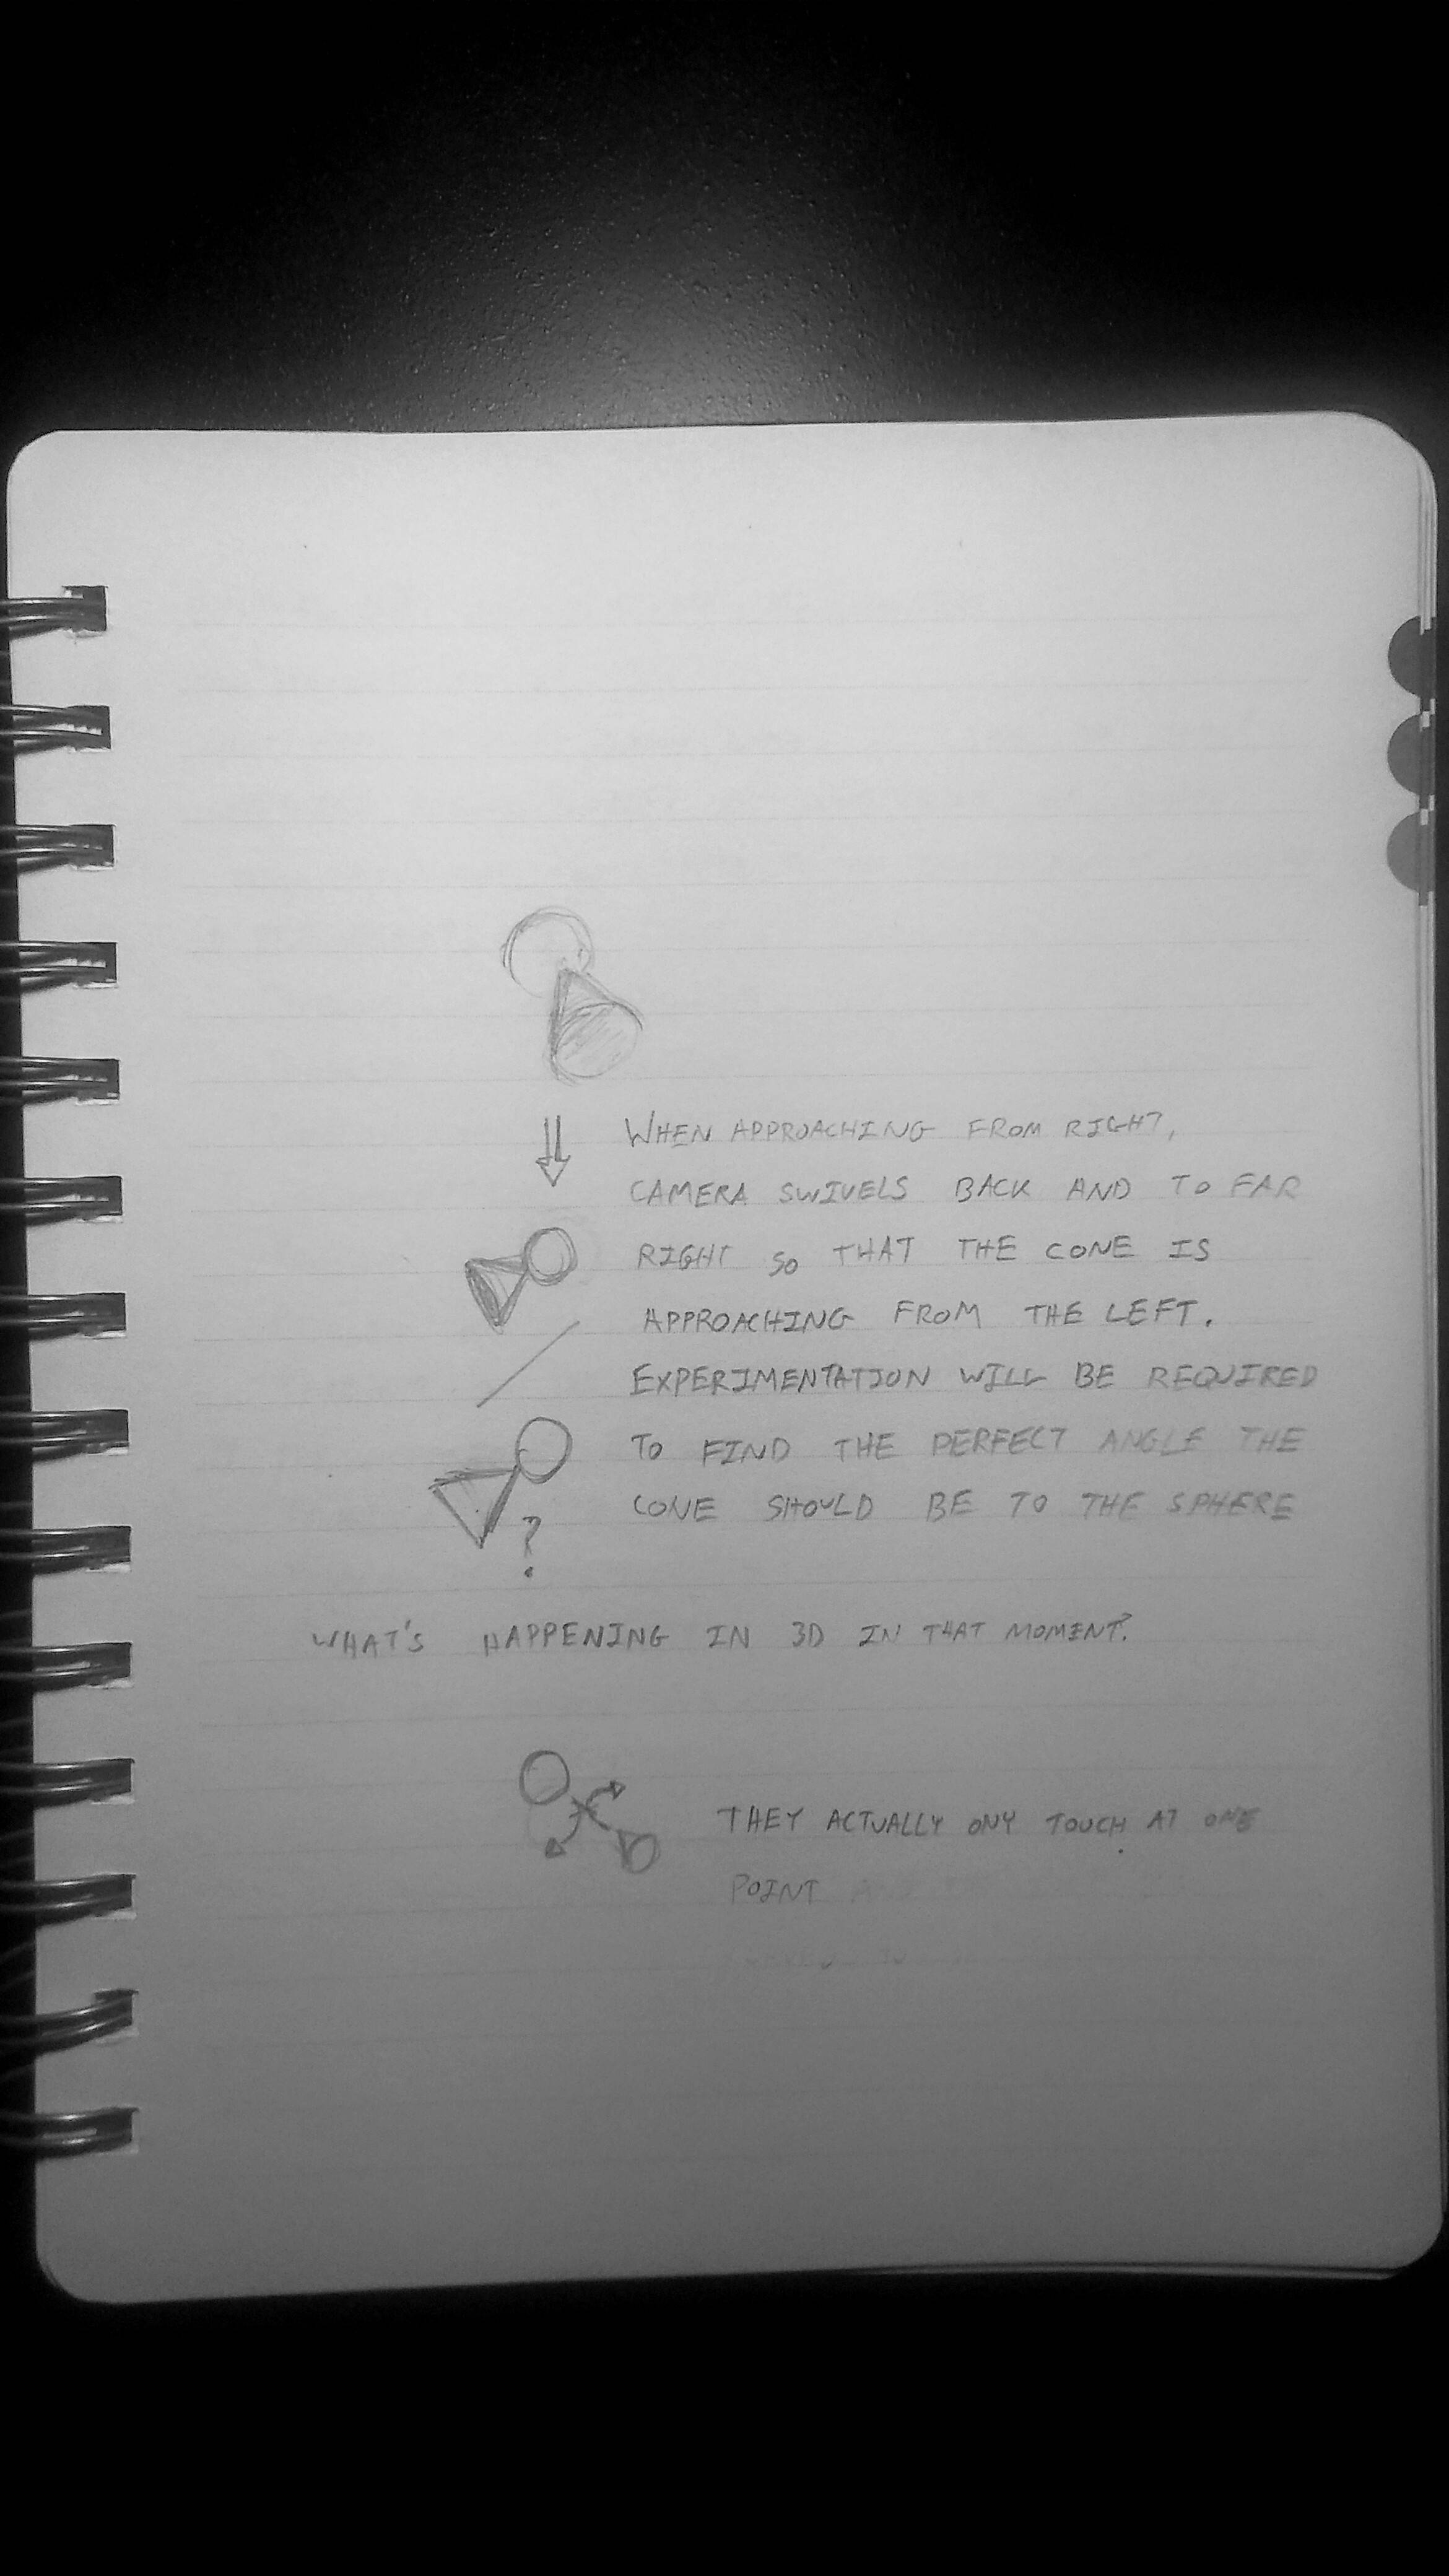 WHEN APPROACHING FROM RIGHT,
CAMERA SWIVELS BACK AND TO FAR
RIGHT SO THAT THE CONE IS
APPROACHING FROM THE LEFT.
EXPERIMENTATION WILL BE REQUIRED
TO FIND THE PERFECT ANGLE THE
CONE SHOULD BE TO THE SPHERE
?
WHAT'S HAPPENING IN 3D IN THAT MOMENT?
THEY ACTUALLY ONY TOUCH AT ONE
POINT